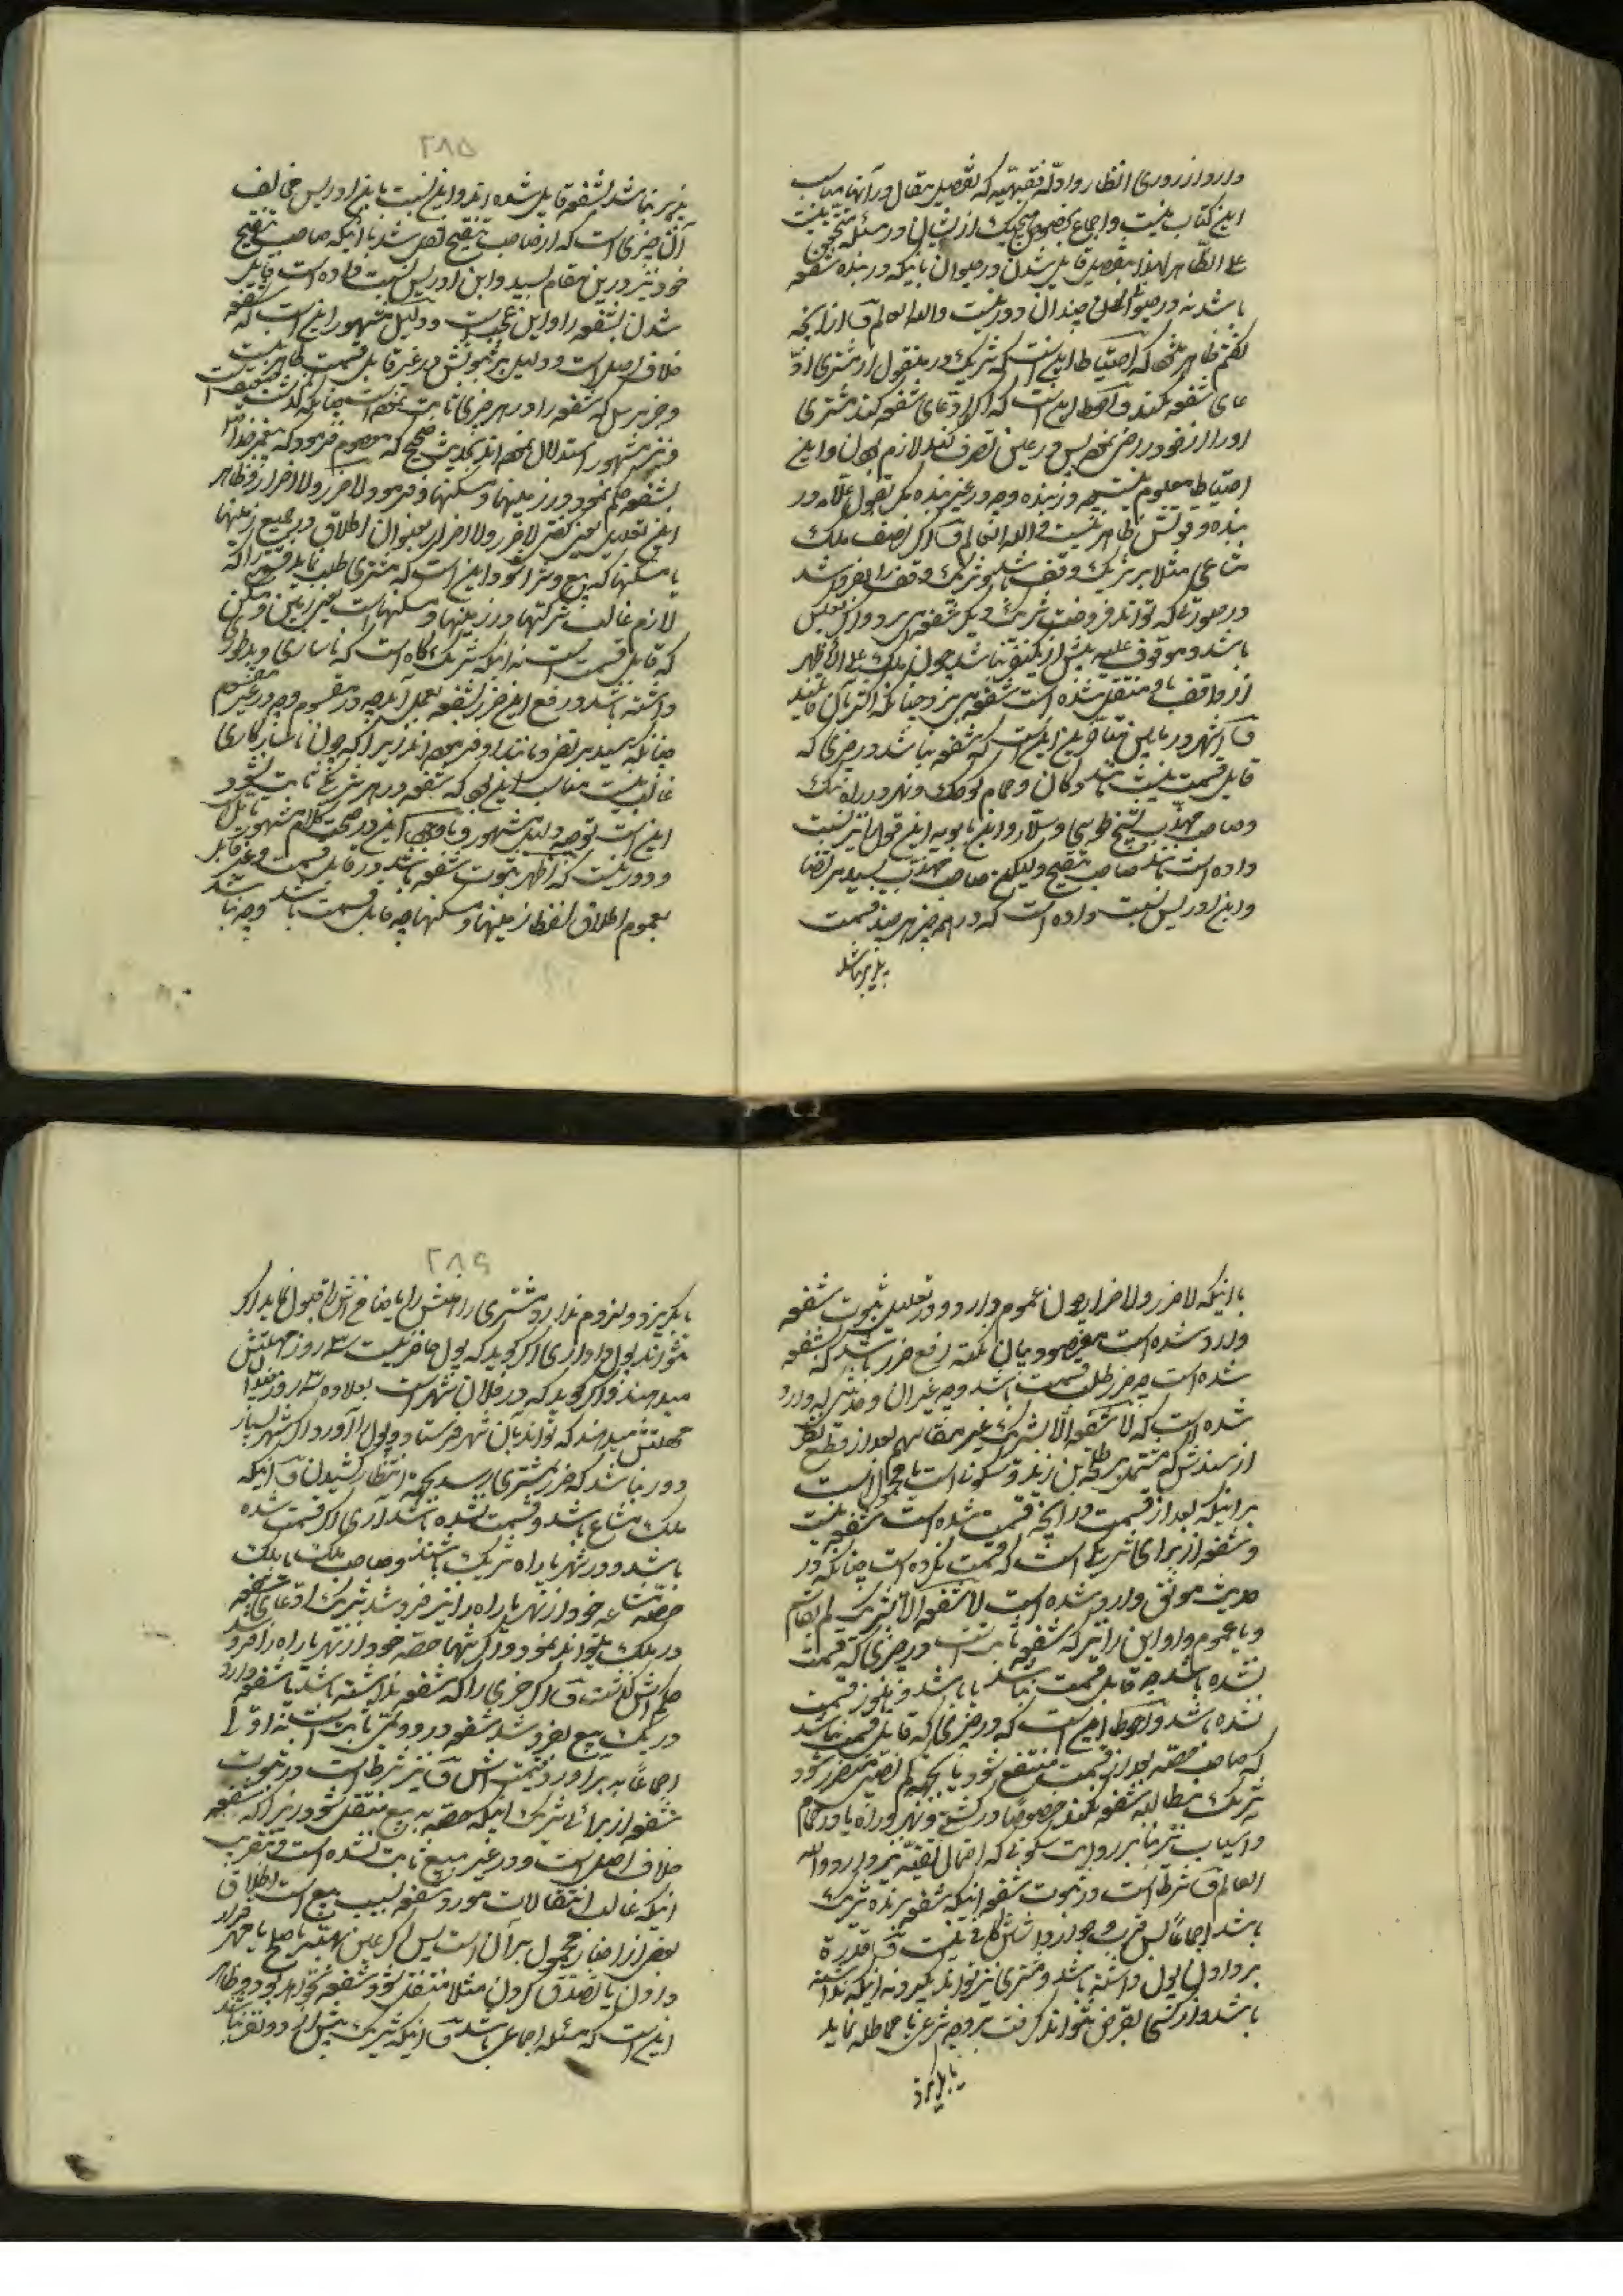 دارد از روی انظار و ادله فقیهیه که تفصیل مقال در آنها مناسب
این کتاب نیست و اجماع بخصوص هیچیک از ایشان در مسئله متحقق نیست
علی الظاهر لهذا بتفصیل قایل شدن در حیوان باینکه در بنده شفعه
باشد نه در حیوان چندان دور نیست والله العالم از آنچه
گفتم ظاهر شد که احتیاط اینست که شریک در منقول از مشتری ادّ
عای شفعه نکند و احوط اینست که اگر ادعای شفعه کند مشتری
او را از خود راضی پس در عین تصرف کند لازم بودن این
احتیاط معلوم نیست چه در بنده و چه در غیر بنده بلکه بقول علامه در
بنده و قوتش ظاهر نیست والله العالم اگر نصف ملک
متاعی مثلا بر یک وقف باشد و شریک وقف را بفروشد
در صورتی که تواند فروخت شریک دیگر شفعه می برد و اگر بعکس
باشد و موقوف علیه بیش از یکنفر نباشد چون ملک علی الاظهر
از واقف باو منتقل شده است شفعه می برد چنانکه اکثر بآن قایلند
اشهر در مابین متاخرین اینست که شفعه نباشد در چیزی که
قابل قسمت نیست مانند دکان و حمام کوچک و نهر و راه تنک
و صاحب مهذب بشیخ طوسی و سلار و ابن بابویه این قول را نیز نسبت
داده است مانند صاحب تنقیح ولیکن صاحب مهذب بسید مرتضا
و ابن ادریس نسبت داده است که در هر چیز هر چند قسمت
پذیر نباشد
۲۸۵
پذیر نباشد بشفعه قایل شده اند و این نسبت بابن ادریس مخالف
آن چیزی است که از صاحب تنقیح نقل شد با اینکه صاحب تنقیح
خود نیز درین مقام بسید و ابن ادریس نسبت داده است قایل
شدن بشفعه را و این عجب است و دلیل مشهور اینست که شفعه
خلاف اصل است و دلیل بر ثبوتش در غیر قابل قسمت ظاهر نیست
و خبر مرسل که شفعه را در هر چیزی ثابت
مشهور استدلال بحدیث صحیح که معصوم فرمود که پیغمبر خدا
بشفعه حکم نمود در زمینها و مسکنها و فرمود لا ضرر ولا اضرار و ظاهر
این تعلیل یعنی لا ضرر ولا اضرار بعنوان اطلاق در جمیع زمینها
یا مسکنها که بیع و شرا شود اینست که مشتری طلب نماید قسمت را که
لازم غالب شرکتها در زمینها و مسکنهاست یعنی زمین و مسکن
که قابل قسمت است نه اینکه شریک گاه است که ناساز و بدسلوک
داشته باشد و رفع این ضرر بشفعه بعمل آید چه در مقسوم و چه در غیر مقسوم
چنانکه سید مرتضی و مانند او فرموده اند زیرا که چون ناسازکاری
غالب نیست مناسب این بود که شفعه در هر شرکتی ثابت نشود
این است توجیه دلیل مشهور و با وجود این در صحت کلام مشهور تامل
و دور نیست که اظهر ثبوت شفعه باشد در قابل قسمت و غیر قابل
بعموم اطلاق لفظ زمینها و مسکنها چه قابل قسمت باشد و چه نباشد
با اینکه لا ضرر ولا ضرار چون عموم دارد و در تعلیل ثبوت شفعه
وارد شده است مقصود بیان نکته رفع ضرر باشد که بشفعه
شده است چه ضرر طلب قسمت باشد و چه غیر آن و حدیثی که وارد
شده است که لا شفعة الا لشریک غیر مقاسم بعد از قطع نظر
از سندش که مشتمل بر طلحه بن زید و سکونی است محمول است
بر اینکه بعد از قسمت در آنچه قسمت شده است شفعه نیست
و شفعه از برای شریکی است که قسمت نکرده است چنانکه در
حدیث موثق وارد شده است لا شفعة الا لشریک لم یقاسم
و یا عموم دارد این را نیز که شفعه ثابت است در چیزی که قسمت
نشده باشد چه قابل قسمت نباشد یا باشد و هنوز قسمت
نشده باشد و احوط اینست که در چیزی که قابل قسمت نباشد
که صاحب حصه بعد از قسمت منتفع شود یا بجهت کم نصیبی متضرر شود
شریک مطالبه شفعه نکند خصوصا در کشتی و نهر و راه یا در حمام
و آسیاب نیز بنا بر روایت سکونی که احتمال تقیه نیز دارد والله
العالم شرط است در ثبوت شفعه اینکه شفعه برنده شریک
باشد اجماعا پس قرب و جوار را دخلی نیست قدرة
بر دادن پول داشته باشد و مشتری نیز تواند بگیرد نه اینکه نداشته
باشد و از کسی بقرض نتواند گرفت بر وجه شرعی یا مماطله نماید
یا بگریزد
۲۸۶
یا بگریزد و لزوم ندارد مشتری را رهنش را یا ضامنش را قبول نماید اگر
نتواند پول داد اری اگر گوید که پول حاضر نیست ۳ روز مهلتش
میدهند و اگر گوید که در فلان شهر است بعلاوه ۳ روز مقدار
مهلتش میدهند که تواند بآن شهر فرستاد و پول را آورد اگر شهر بسیار
دور نباشد که ضرر بمشتری رسد بجهت انتظار کشیدن اینکه
ملک مشاع باشد و قسمت نشده باشد آری اگر قسمت شده
باشد و در نهر یا راه شریک باشند و صاحب ملک با ملک
حصه مشاعه خود از نهر یا راه را نیز فروشد شریک ادعای شفعه
در ملک میتواند نمود و اگر تنها حصه خود از نهر یا راه را فروشد
حکمش گذشت اگر چیزی را که شفعه نداشته باشد با شفعه دارد
در یک بیع بفروشد شفعه در دومی ثابت است نه اولی
اجماعا به برآورد قیمتش نیز شرط است در ثبوت
شفعه از برای شریک اینکه حصه به بیع منتقل شود زیرا که شفعه
خلاف اصل است و در غیر مبیع ثابت نشده است و بتقریب
اینکه غالب انتقالات مورد شفعه بسبب بیع است اطلاق
بعضی از اخبار محمول بر آن است پس اگر بعنوان هبه یا صلح یا مهر قرار
دادن یا تصدق کردن مثلا منتقل شود شفعه نخواهد بود و ظاهر
اینست که مسئله اجماعی باشد اینکه شریک بیش از دو نفر نباشد